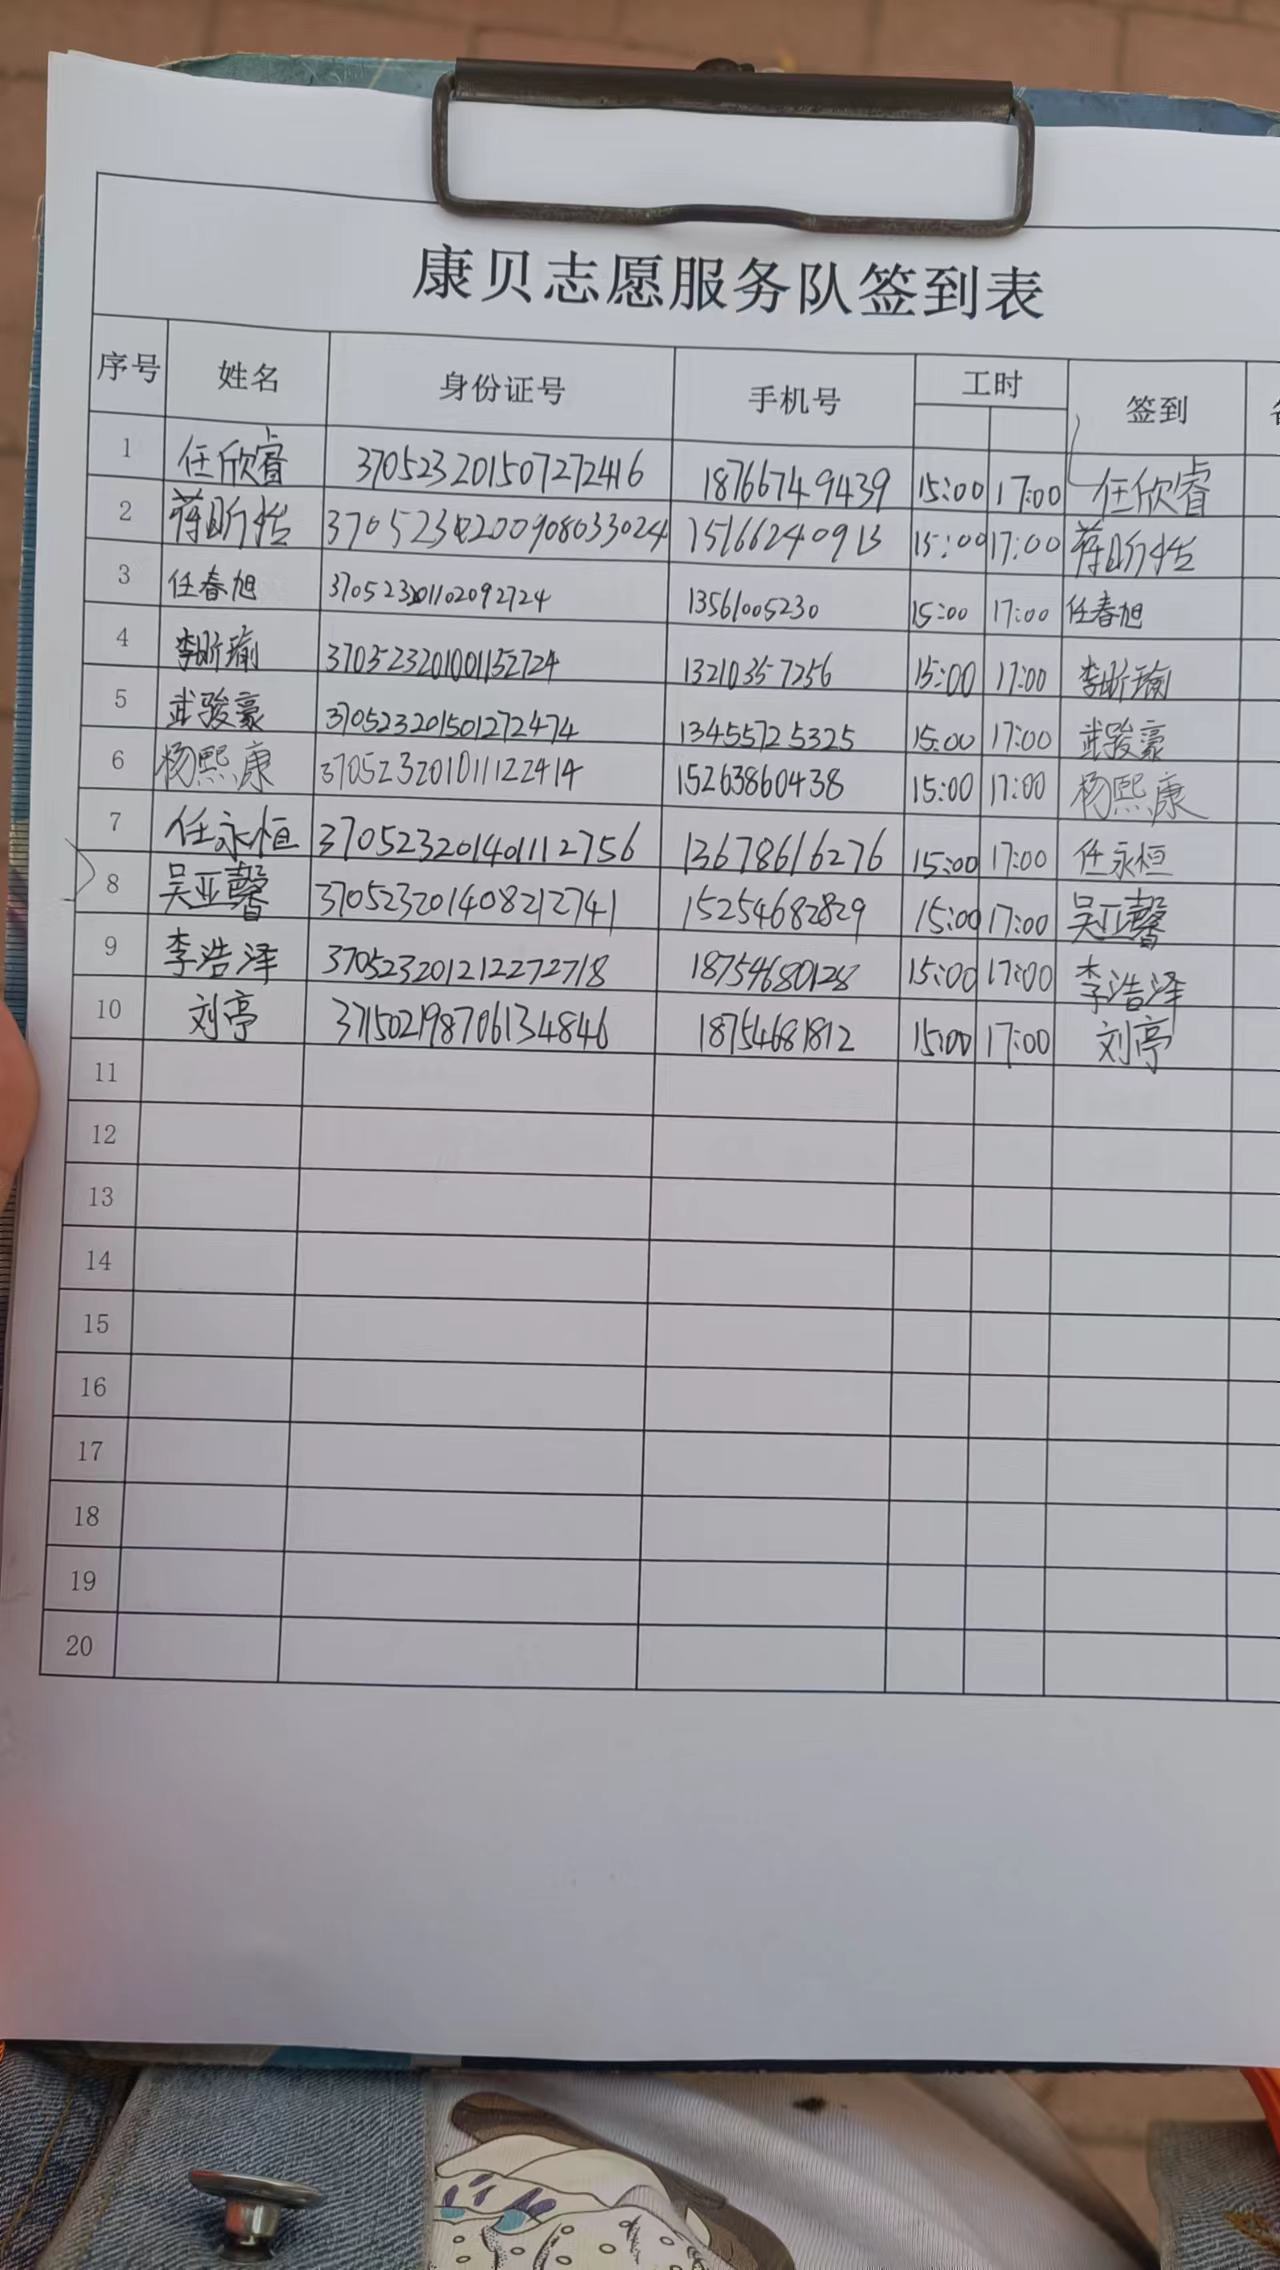 康贝志愿服务队签到表
序号 姓名 身份证号 手机号 工时 签到
1 任欣睿 370523201507272416 18766749439 15:00 17:00 任欣睿
2 蒋昕恬 15166240913 15:00 17:00 蒋昕恬
3 任春旭 370523201102092724 13561005230 15:00 17:00 任春旭
4 李昕瑜 370523201001152724 13210357256 15:00 17:00 李昕瑜
5 武骏豪 370523201501272474 13455725325 15:00 17:00 武骏豪
6 杨熙康 370523201011122414 15263860438 15:00 17:00 杨熙康
7 任永恒 370523201401112756 13678616276 15:00 17:00 任永恒
8 吴亚馨 370523201408212741 15254682829 15:00 17:00 吴亚馨
9 李浩泽 370523201212272718 18754680128 15:00 17:00 李浩泽
10 刘亭 371502198706134846 18754681812 15:00 17:00 刘亭
11
12
13
14
15
16
17
18
19
20